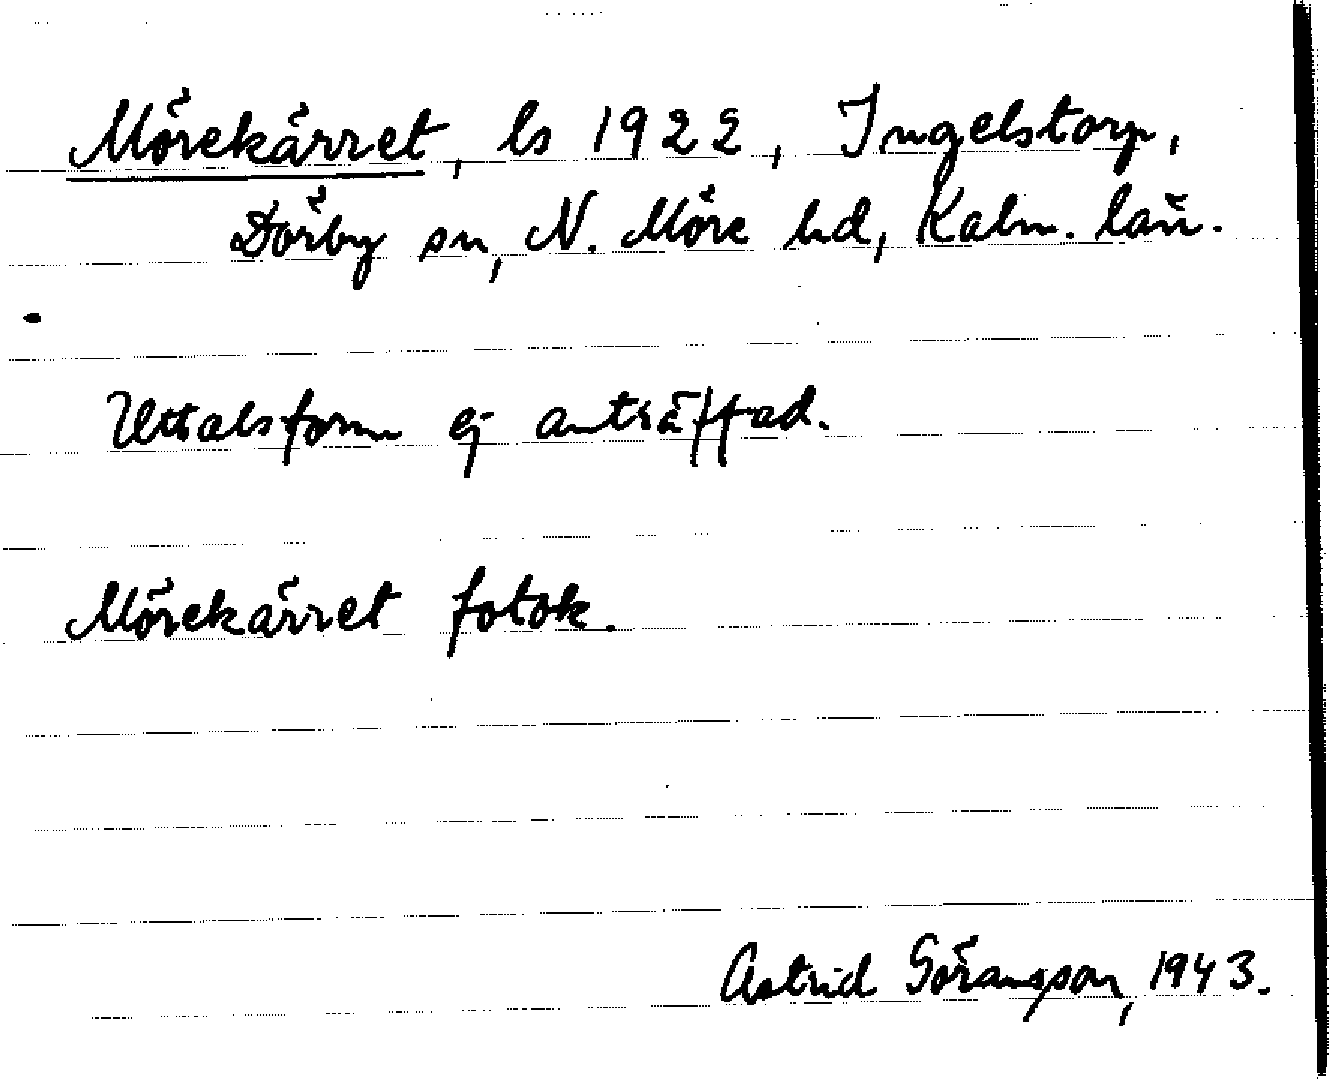 Mörekärret, ls 1922, Ingelstorp,
Dörby sn, N. Möre hd, Kalm. län.
Uttalsform ej anträffad.
Mörekärret fotok.
Astrid Göransson, 1943.